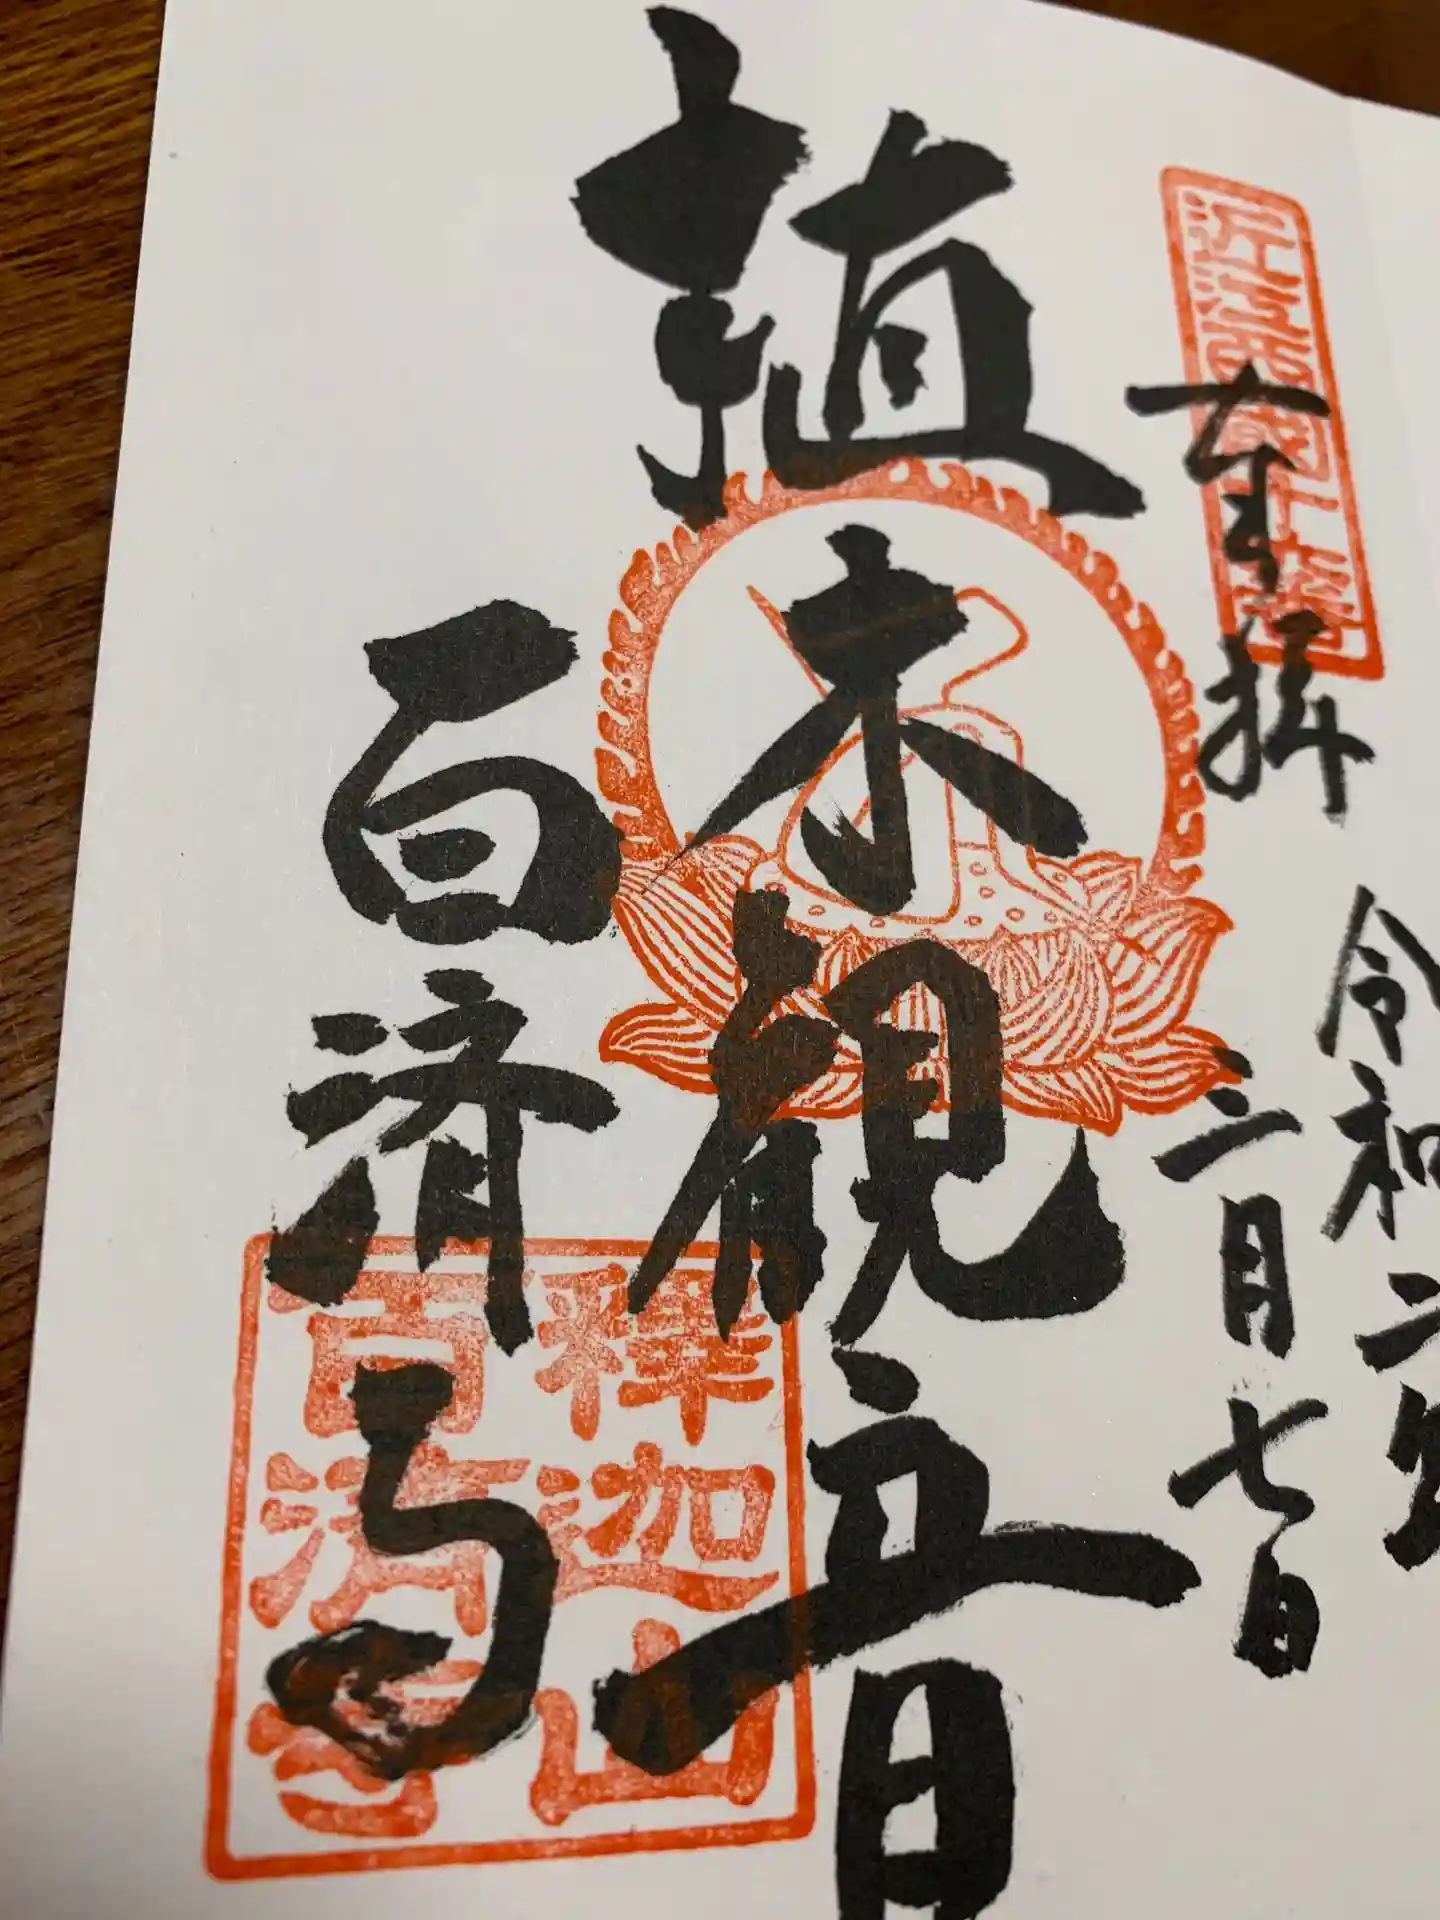 奉拝
近江西国十六番
令和二年
三月七日
植木観音
百済寺
釋迦山
百済寺